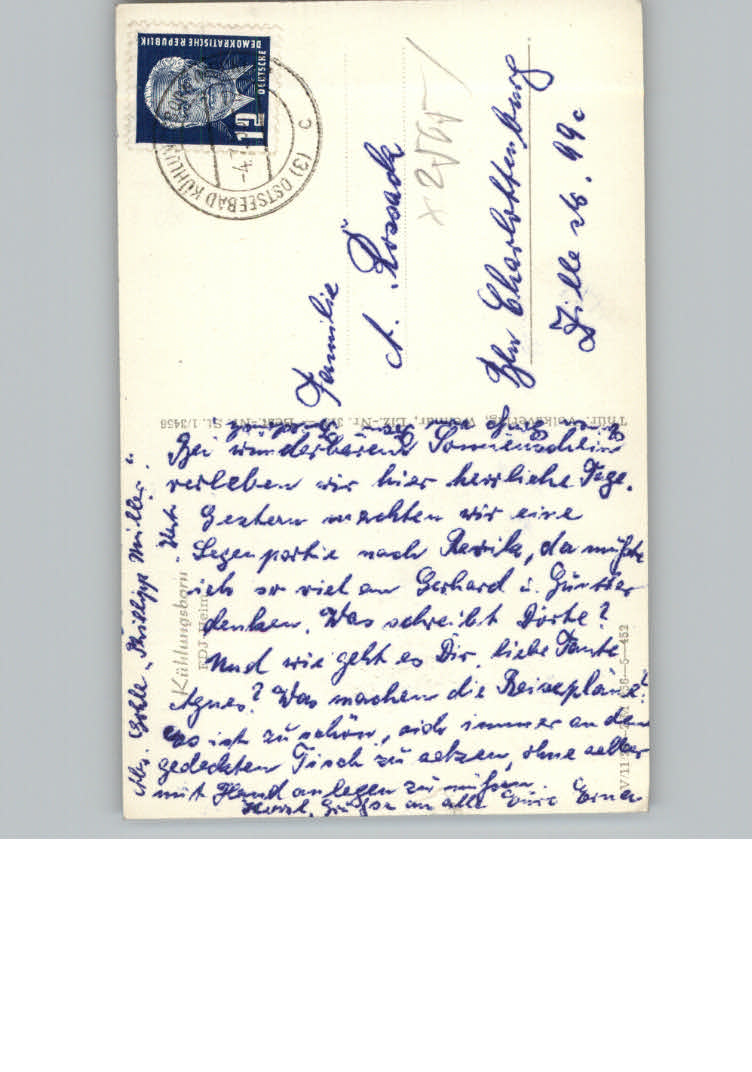 DEUTSCHE
DEMOKRATISCHE REPUBLIK
12
(3) OSTSEEBAD KÜHLUN
-4.7.
c
Familie
A. Kossack
Bln Charlottenburg
Zille str. 99c
Thür. Volksverlag, Weimar, Liz.-Nr. Best.-Nr. St. 1/3458
Kühlungsborn
FDJ-Heim
Bei wunderbarem Sonnenschein
verleben wir hier herrliche Tage.
Gestern machten wir eine
nach Rerik, da mußte
ich so viel an Gerhard u. Günter
denken. Was schreibt Dörte?
Und wie geht es Dir, liebe Tante
Agnes? Was machen die Reisepläne?
Es ist zu schön, sich immer an den
gedeckten Tisch zu setzen, ohne selber
mit Hand anlegen zu müssen.
Herzl. Grüße an alle Eure Erna
Abs. "Phillipp Müller"